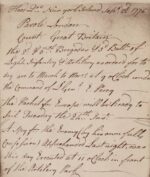 New York Island Sept. 22d 1776
Parole London
Count. Great Britain
The 5th & 6th Brigades & 3d Battn. of
Light Infantry & Artillery ordered for to
day are to March to
the Command of
The Packet for Europe will be ready to
Sail Tuesday the 24th Inst.
A Spy for the Enemy (by his own full
Confession) Apprehended Last night, was
this day Executed at 11 oClock in front
of the Artillery Park